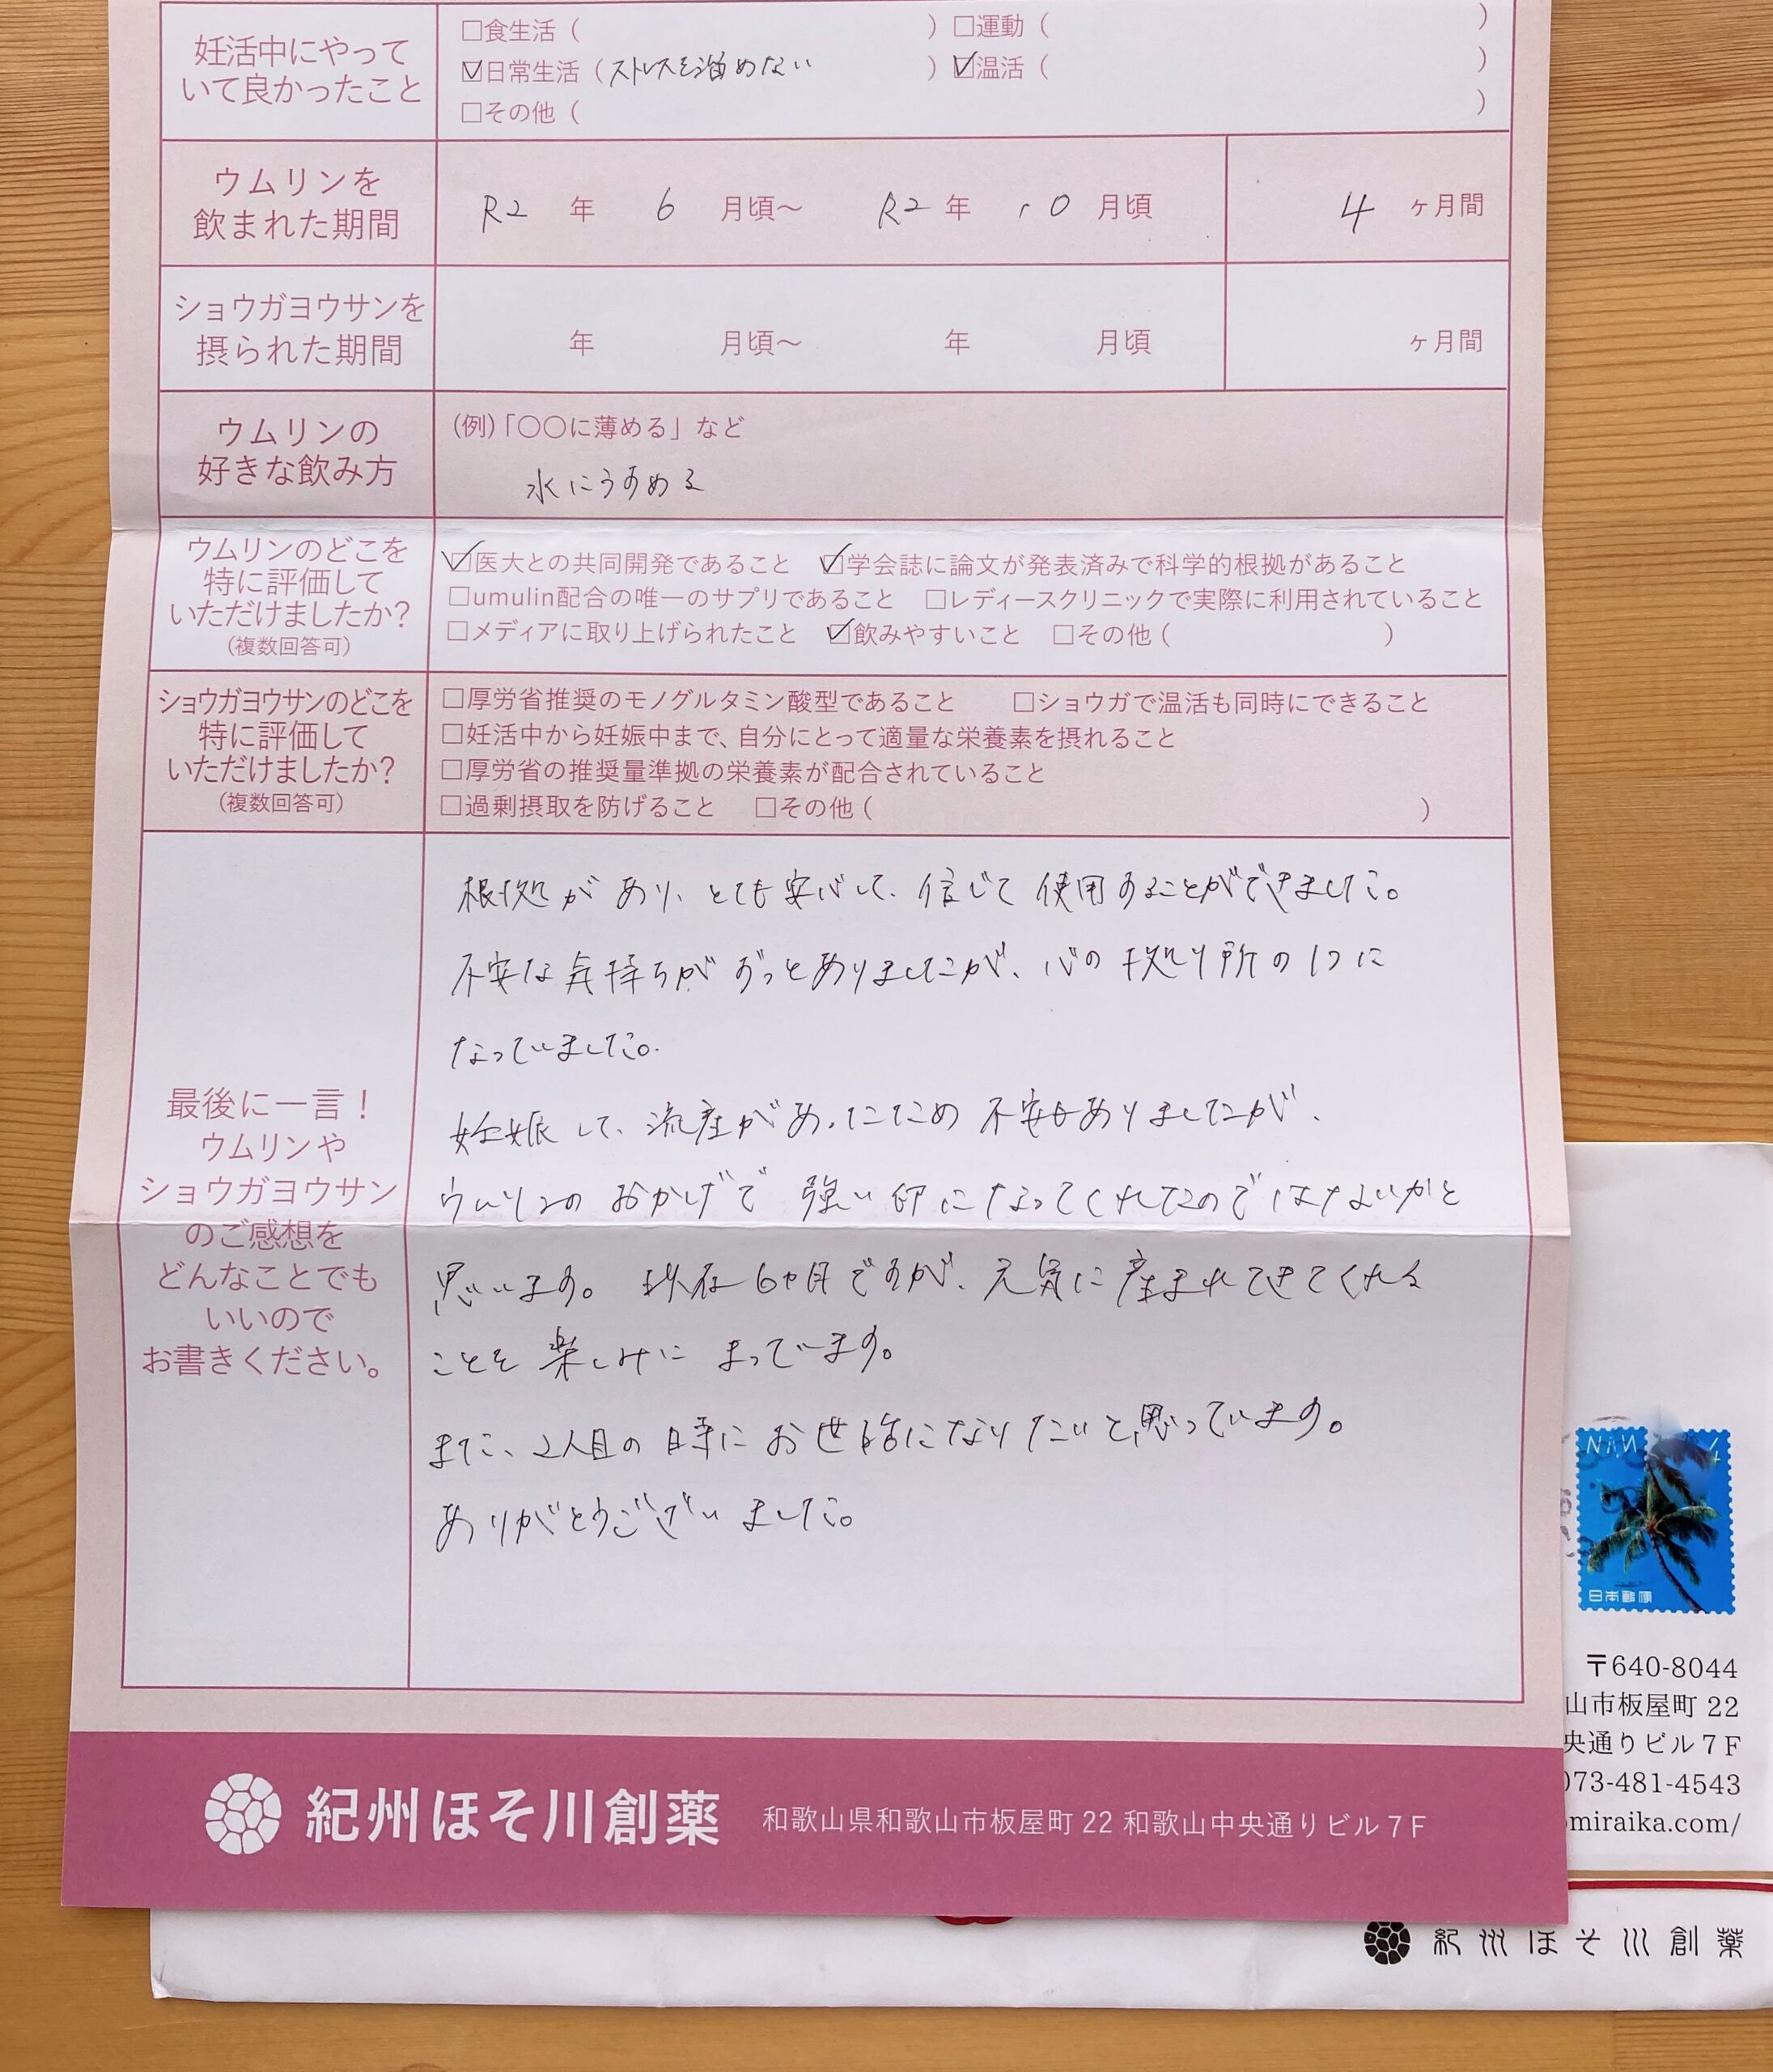 妊活中にやって
いて良かったこと
□食生活（　）□運動（　）
☑日常生活（ストレスを溜めない）☑温活（　）
□その他（　）
ウムリンを
飲まれた期間
R2 年 6 月頃〜 R2 年 10 月頃 4 ヶ月間
ショウガヨウサンを
摂られた期間
年 月頃〜 年 月頃 ヶ月間
ウムリンの
好きな飲み方
(例)「〇〇に薄める」など
水にうすめる
ウムリンのどこを
特に評価して
いただけましたか?
(複数回答可)
☑医大との共同開発であること ☑学会誌に論文が発表済みで科学的根拠があること
□umulin配合の唯一のサプリであること □レディースクリニックで実際に利用されていること
□メディアに取り上げられたこと ☑飲みやすいこと □その他（　）
ショウガヨウサンのどこを
特に評価して
いただけましたか?
(複数回答可)
□厚労省推奨のモノグルタミン酸型であること □ショウガで温活も同時にできること
□妊活中から妊娠中まで、自分にとって適量な栄養素を摂れること
□厚労省の推奨量準拠の栄養素が配合されていること
□過剰摂取を防げること □その他（　）
最後に一言！
ウムリンや
ショウガヨウサン
のご感想を
どんなことでも
いいので
お書きください。
根拠があり、とても安心して、信じて使用することができました。
不安な気持ちがずっとありましたが、心の拠り所の1つに
なっていました。
妊娠して、流産があったため不安もありましたが、
ウムリンのおかげで強い卵になってくれたのではないかと
思います。現在6ヵ月ですが、元気に産まれてきてくれる
ことを楽しみにまっています。
また、2人目の時にお世話になりたいと思っています。
ありがとうございました。
紀州ほそ川創薬 和歌山県和歌山市板屋町 22 和歌山中央通りビル 7 F
NIPPON
日本郵便
〒640-8044
山市板屋町 22
央通りビル 7 F
073-481-4543
miraika.com/
紀州ほそ川創薬